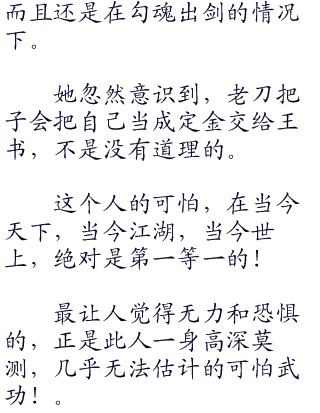 而且还是在勾魂出剑的情况
下。
她忽然意识到，老刀把
子会把自己当成定金交给王
书，不是没有道理的。
这个人的可怕，在当今
天下，当今江湖，当今世
上，绝对是第一等一的！
最让人觉得无力和恐惧
的，正是此人一身高深莫
测，几乎无法估计的可怕武
功！。